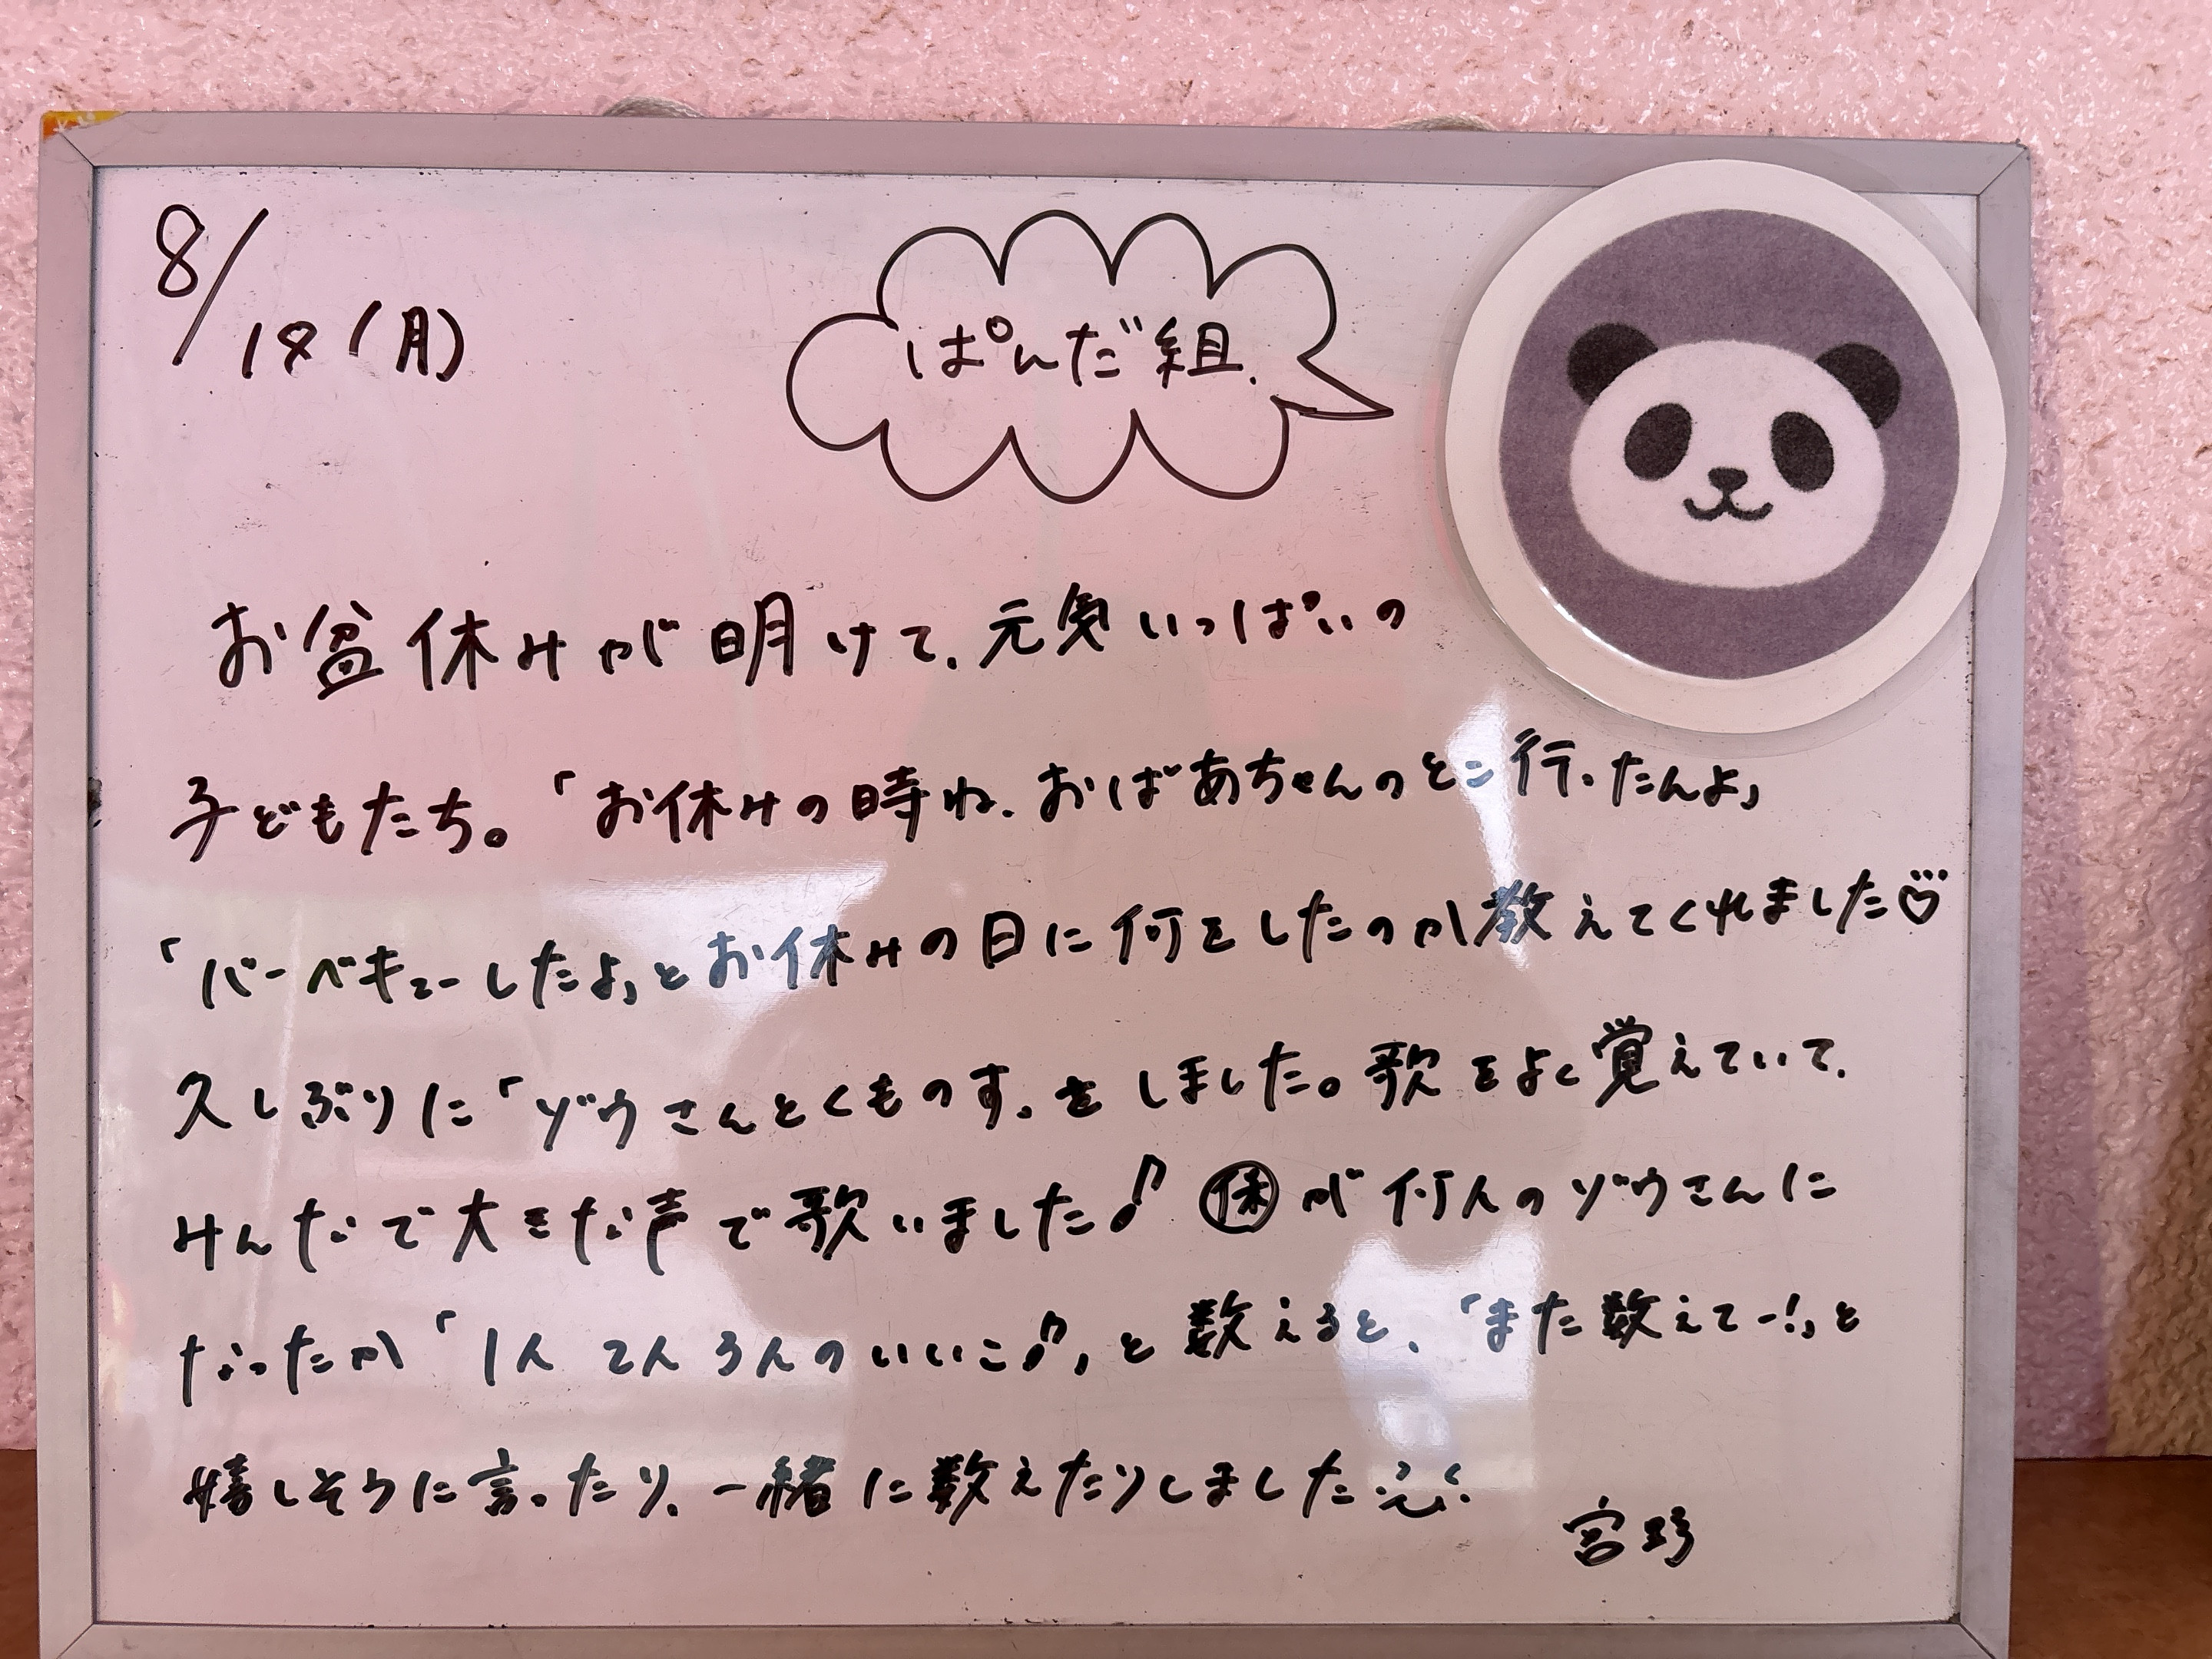 8/18(月)
ぱんだ組.
お盆休みが明けて、元気いっぱいの
子どもたち。「お休みの時ね、おばあちゃんのとこ行ったんよ」
「バーベキューしたよ」とお休みの日に何をしたのか教えてくれました♡
久しぶりに「ゾウさんとくものす」をしました。歌をよく覚えていて、
みんなで大きな声で歌いました♪ ㊡が何人のゾウさんに
なったか「1人 2人 3人のいいこ♪」と数えると、「また数えてー!」と
嬉しそうに言ったり、一緒に数えたりしました
宮野